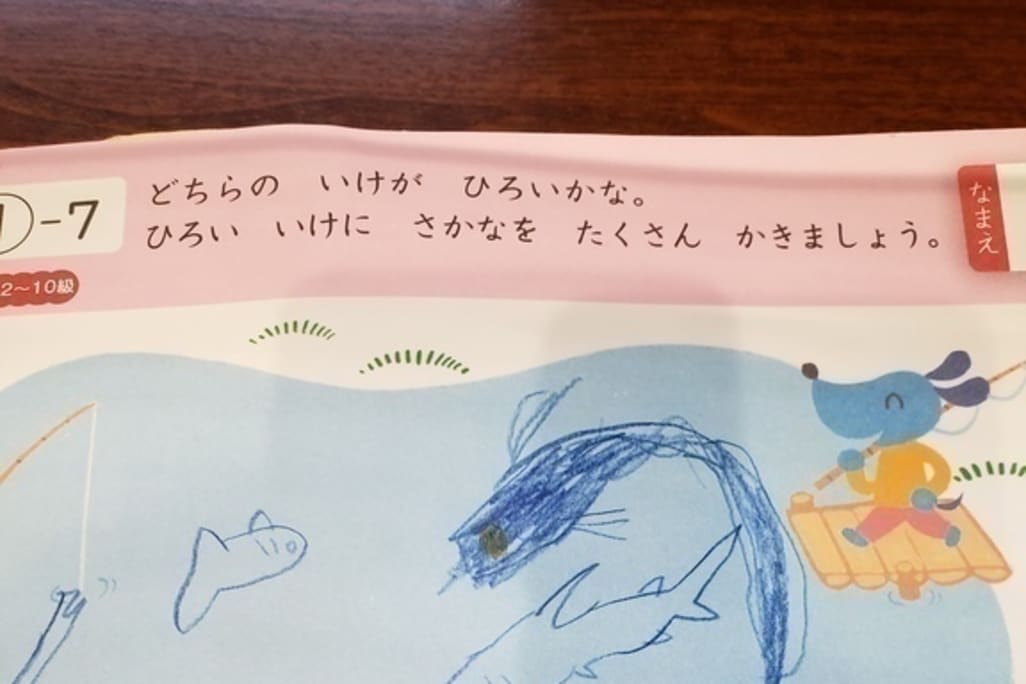 -7
どちらの いけが ひろいかな。
ひろい いけに さかなを たくさん かきましょう。
なまえ
2〜10級